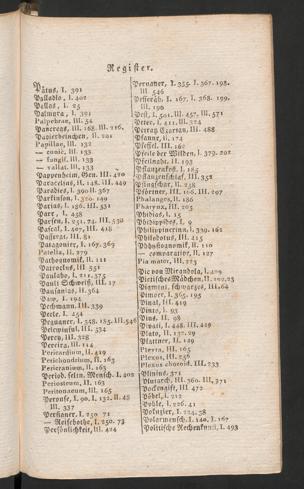 Register.
Pätus, I. 391
Palladio, I. 402
Pallas, I. 25
Palmyra, I. 391
Palpebrae, III. 54
Pancreas, III. 168. III. 216.
Papierbeinchen, II. 201
Papillae, III. 132
— conic. III. 133
— fungif. III. 133
— vallat. III. 133
Pappenheim, Gen. III. 410
Paracelsus, I. 148. II. 449
Paradies, I. 390. II. 367
Parkinson, I. 320. 149
Parias, I. 186. III. 531
Parr, I. 458
Parsen, I. 251. 74. III. 530
Pascal, I. 407. III. 418
Passerat, III. 81
Patagonier, I. 167. 369
Patella, II. 279
Pathognomik, II. 111
Patroclus, III. 351
Paulche, I. 211. 375
Pauli Schweiß, III. 17
Pausanias, II. 364
Paw, I. 194
Pechmann, III. 339
Peele, I. 454
Peguaner, I. 348. 185. III. 546
Peleginsul, III. 534
Percy, III. 328
Pereira, III. 114
Pericardium, II. 419
Perichondrium, II. 163
Pericranium, II. 163
Period. selin. Mensch. I. 402
Periosteum, II. 163
Peritonaeum, III. 165
Perouse, I. 90. I. 132. II. 48
III. 337
Persianer, I. 250. 71
— Reisebothe, I. 250. 73
Persönlichkeit, III. 424
Peruaner, I. 355. I. 367. 198.
III. 546
Pescheräh. I. 167. I. 368. 199.
III. 196
Pest, I. 501. III. 457. III. 571
Peter, I. 411. III. 324
Petraz Czartan, III. 488
Pfanne, II. 174
Pfeffel, III. 162
Pfeile der Wilden, I. 379. 202
Pfeilnaht, II. 193
Pflanzenkost, I. 185
Pflanzenschlaf, III. 352
Pflugschar, II. 238
Pförtner, III. 106. III. 207
Phalanges, II. 186
Pharynx, III. 203
Phobias, I. 15
Phidippides, I. 9
Philippinerinn, I. 339. 161
Philodotus, III. 415
Physiognomik, II. 110
— comparative, II. 127
Pia mater, III. 223
Pic von Mirandola, I. 409
Pietisches Mädchen, II. 202. 23
Pigment, schwarzes, III. 64
Pimoer, I. 365. 195
Pinal, III. 419
Pinto, I. 93
Pius, II. 98
Pivati, I. 448. III. 429
Plato, II. 132. 29
Plattner, II. 129
Pleura, III. 165
Plexus, III. 256
Plexus choroid. III. 233
Plinius, 371
Plutarch, III. 360. III. 371
Pockengift, III. 472
Pödel, I. 212
Pohle, I. 226. 41
Polnzier, I. 224. 38
Polarmensch, I. 140. I. 167
Politische Rechenkunst, I. 493